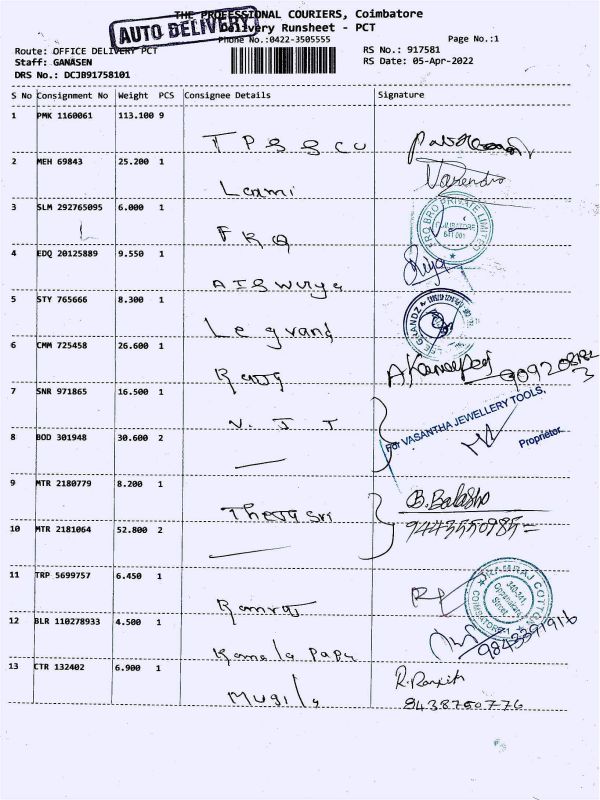 THE PROFESSIONAL COURIERS, Coimbatore
AUTO DELIVERY
Delivery Runsheet - PCT
Phone No.:0422-3505555
Page No.:1
Route: OFFICE DELIVERY PCT
RS No.: 917581
Staff: GANASEN
RS Date: 05-Apr-2022
DRS No.: DCJB91758101
S No Consignment No Weight PCS Consignee Details Signature
1 PMK 1160061 113.100 9
T P S S C U
2 MEH 69843 25.200 1
Laxmi Narendra
3 SLM 292765095 6.000 1
F R Q
FRQ BRO PRIVATE LIMITED
COIMBATORE
641 001
4 EDQ 20125889 9.550 1
AISWUrya Riya
5 STY 765666 8.300 1
Le grand
6 CMM 725458 26.600 1
7 SNR 971865 16.500 1
N. J T
For VASANTHA JEWELLERY TOOLS,
Proprietor
8 BOD 301948 30.600 2
9 MTR 2180779 8.200 1
Theja sri B. Balasho
10 MTR 2181064 52.800 2
9443550985
11 TRP 5699757 6.450 1
Ramraj
RAMRAJ COTTON
COIMBATORE-1
340-341
Oppanakara
Street
12 BLR 110278933 4.500 1
9843391916
Kamala Papu
13 CTR 132402 6.900 1
R. Ranjith
Mugila 9438760776